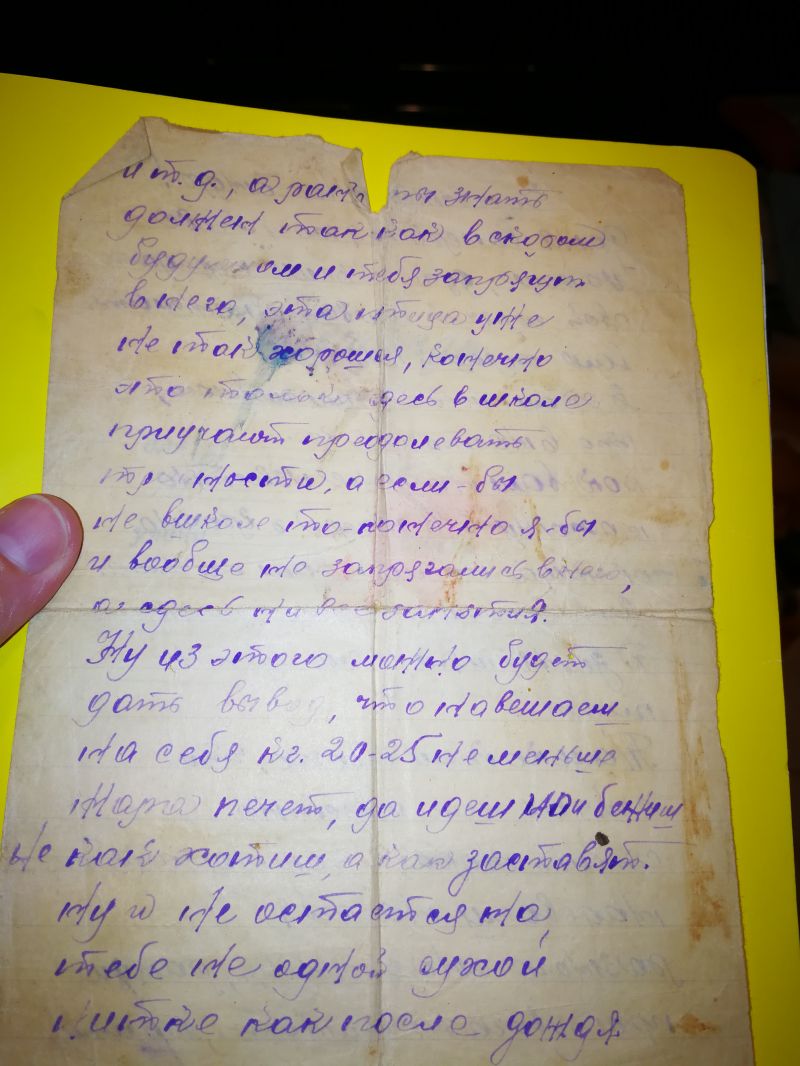 и т.д., а ты знать
должен так как в скором
ом и тебя запрягут
в него, эта птица уже
не так хороша, конечно
это здесь в школе
приучают преодолевать
а если-бы
не в школе то-конечно я-бы
и вообще не запрягались в него,
а здесь на все занятия.
Ну из этого можно будет
дать вывод, что навешаем
на себя кг. 20-25 не меньше
жара печет, да идеш или бежиш
не как хотиш, а как заставят.
ну и не остается на
тебе не одной сухой
нитке как после дождя